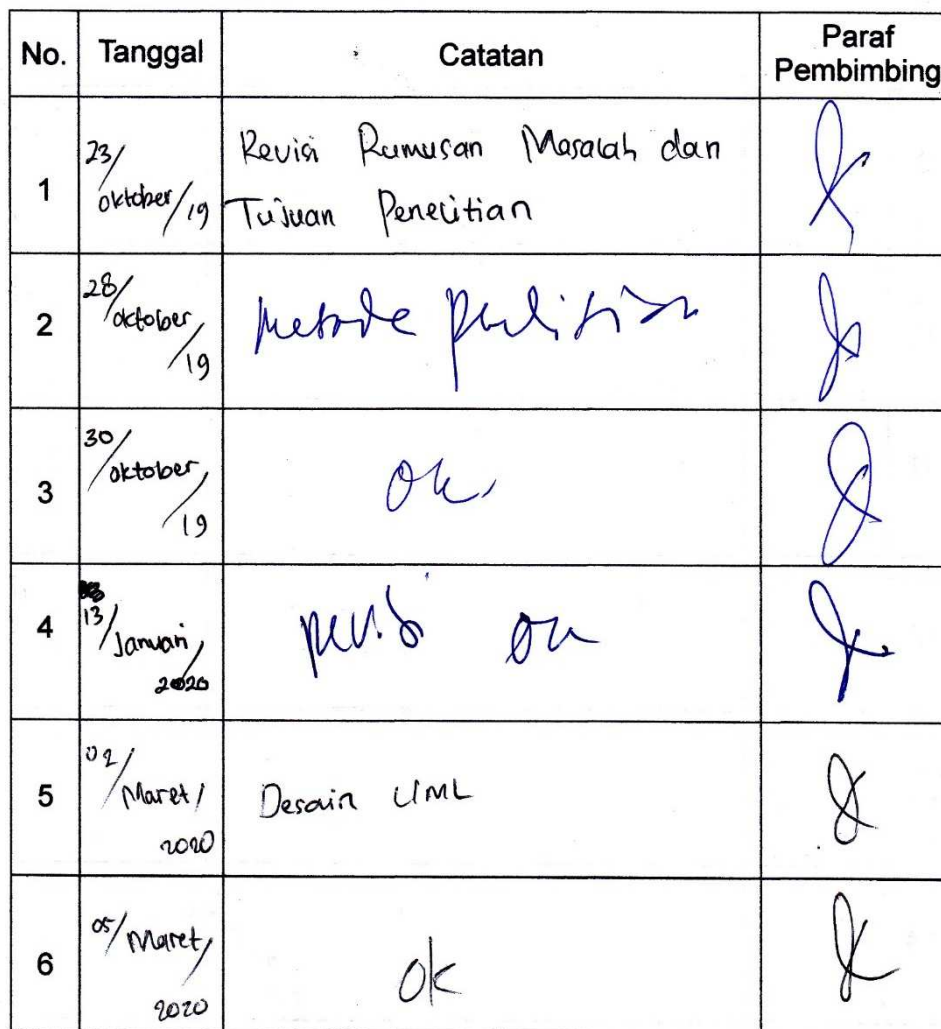 No. Tanggal Catatan Paraf
Pembimbing
1
23/
oktober/19
Revisi Rumusan Masalah dan
Tujuan Penelitian
2
28/
oktober/
19
Metode
3
30/
oktober/
19
ok
4
13/
Januari/
2020
ok
5
02/
Maret/
2020
Desain UML
6
05/Maret/
2020
ok